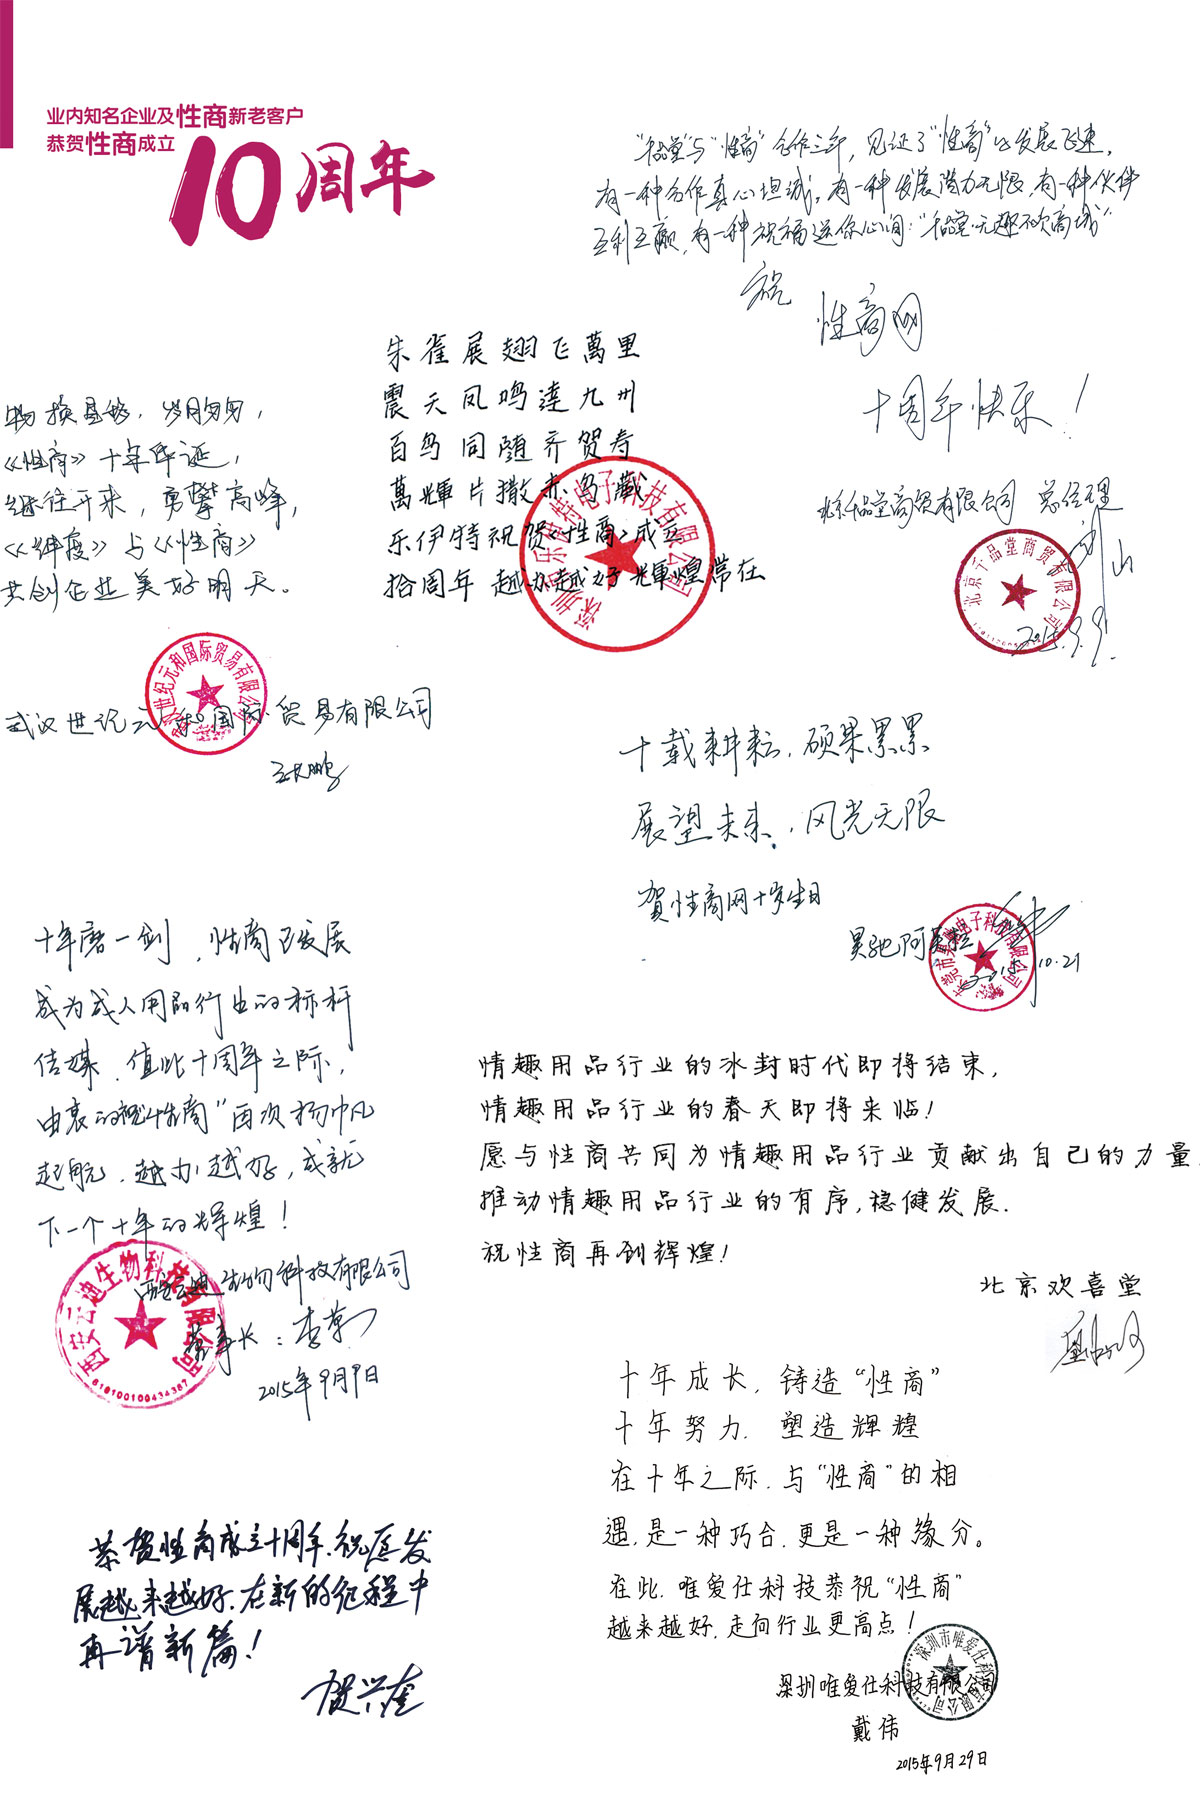 业内知名企业及性商新老客户
恭贺性商成立
10周年
"千品堂"与"性商"合作三年，见证了"性商"的发展飞速，
有一种合作真心坦诚，有一种发展潜力无限，有一种伙伴
互利互赢，有一种祝福送你心间："千品堂·无趣不欢商城"
祝
性商网
十周年快乐！
北京千品堂商贸有限公司 总经理
北京千品堂商贸有限公司
2015.9.9
朱雀展翅飞萬里
震天凤鸣達九州
百鸟同随齐贺寿
萬輝片撒赤鸟藏
乐伊特祝贺《性商》成立
拾周年 越办越好 輝煌常在
深圳市乐伊特电子科技有限公司
物换星移，岁月匆匆，
《性商》十年华诞，
继往开来，勇攀高峰，
《纬度》与《性商》
共创企业美好明天。
武汉世纪元和国际贸易有限公司
武汉世纪元和国际贸易有限公司
十载耕耘，硕果累累
展望未来，风光无限
贺性商网十岁生日
昊驰阿
2015.10.21
十年磨一剑，性商已发展
成为成人用品行业的标杆
传媒，值此十周年之际，
由衷的祝"性商"再次扬帆
起航，越办越好，成就
下一个十年的辉煌！
西安云迪生物科技有限公司
西安云迪生物科技有限公司
6101001004343​67
董事长：李
2015年9月9日
情趣用品行业的冰封时代即将结束，
情趣用品行业的春天即将来临！
愿与性商共同为情趣用品行业贡献出自己的力量，
推动情趣用品行业的有序，稳健发展.
祝性商再创辉煌！
北京欢喜堂
十年成长，铸造"性商"
十年努力，塑造辉煌
在十年之际，与"性商"的相
遇，是一种巧合，更是一种缘分。
在此，唯爱仕科技恭祝"性商"
越来越好，走向行业更高点！
深圳唯爱仕科技有限公司
深圳市唯爱仕科技有限公司
戴伟
2015年9月29日
恭贺性商成立十周年，祝愿发
展越来越好，在新的征程中
再谱新篇！
贺兴奎